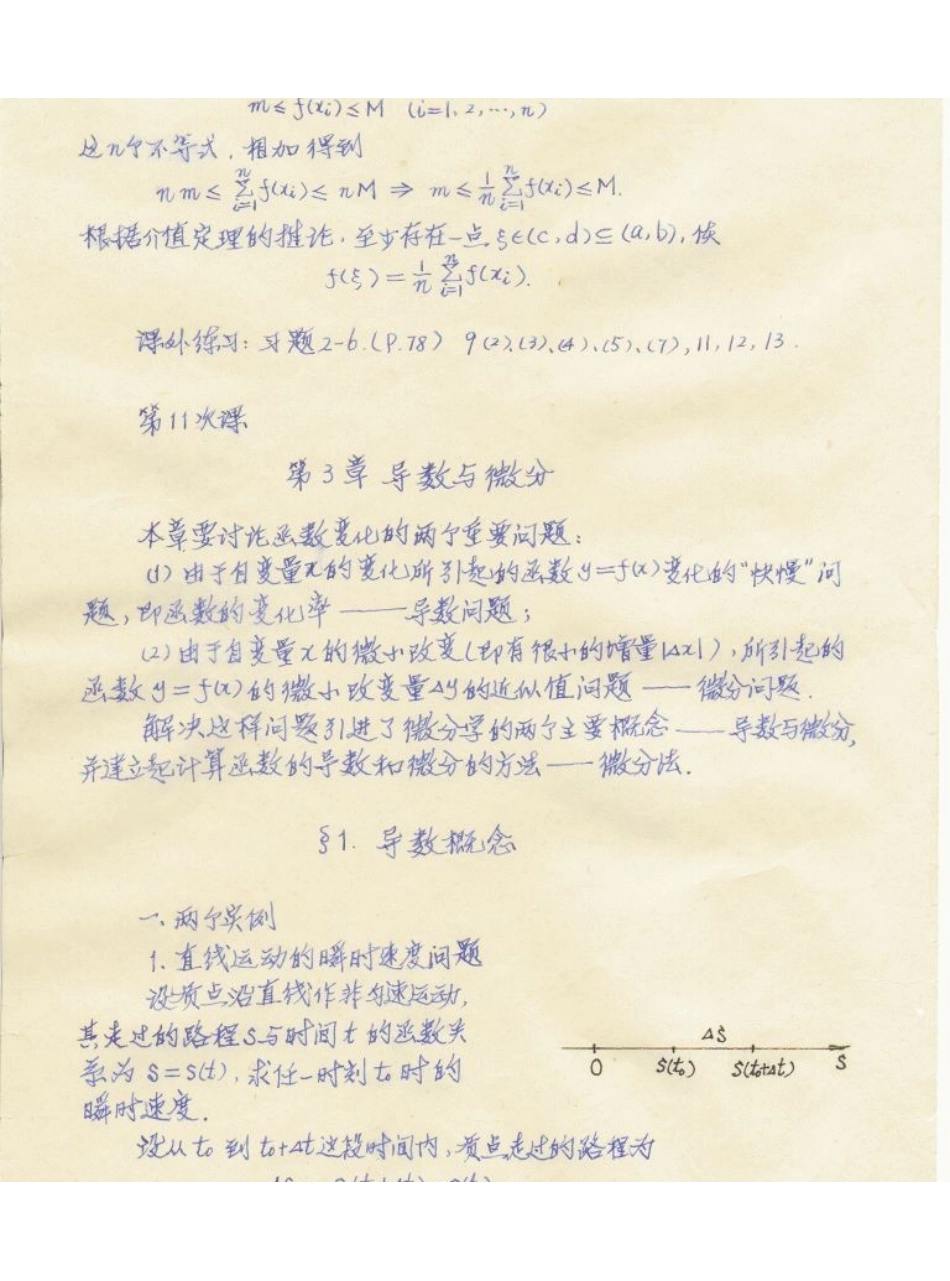 m ≤ f(xi) ≤ M (i=1, 2, ⋯, n)
这n个不等式, 相加得到
n m ≤ ∑_{i=1}^{n} f(xi) ≤ nM ⇒ m ≤ 1/n ∑_{i=1}^{n} f(xi) ≤ M.
根据介值定理的推论, 至少存在一点 ξ∈(c, d)⊆(a, b), 使
f(ξ) = 1/n ∑_{i=1}^{n} f(xi).
课外练习: 习题2-6.(P.78) 9(2)、(3)、(4)、(5)、(7), 11, 12, 13.
第11次课
第3章 导数与微分
本章要讨论函数变化的两个重要问题:
(1) 由于自变量x的变化所引起的函数y=f(x)变化的“快慢”问
题, 即函数的变化率 —— 导数问题;
(2) 由于自变量x的微小改变(即有很小的增量|Δx|), 所引起的
函数y=f(x)的微小改变量Δy的近似值问题 —— 微分问题.
解决这样问题引进了微分学的两个主要概念 —— 导数与微分,
并建立起计算函数的导数和微分的方法 —— 微分法.
§1. 导数概念
一、两个实例
1. 直线运动的瞬时速度问题
设质点沿直线作非匀速运动,
其走过的路程S与时间t的函数关
系为 S=S(t), 求任一时刻t₀时的
瞬时速度.
ΔS
0 S(t₀) S(t₀+Δt) S
设从t₀到t₀+Δt这段时间内, 质点走过的路程为